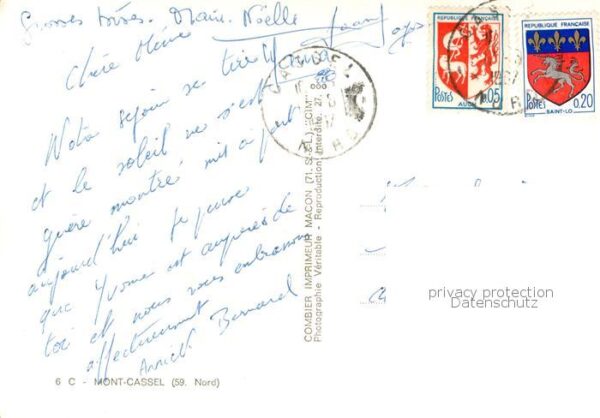 Grosses bises. Marie. Noëlle
Chère Mémé
Notre séjour se tire
et le soleil ne s'est
guère montré mis à part
aujourd'hui. Je pense
que Yvonne est auprès de
toi et nous vous embrassons
affectueusement
Annick Bernard
6 C - MONT-CASSEL (59. Nord)
COMBIER IMPRIMEUR MACON (71. S.-&-L.) "CIM"
Photographie Véritable - Reproduction Interdite.
REPUBLIQUE FRANÇAISE
POSTES
AUCH
0,05
REPUBLIQUE FRANÇAISE
POSTES
0,20
SAINT-LO
CASSEL
NORD
privacy protection
Datenschutz